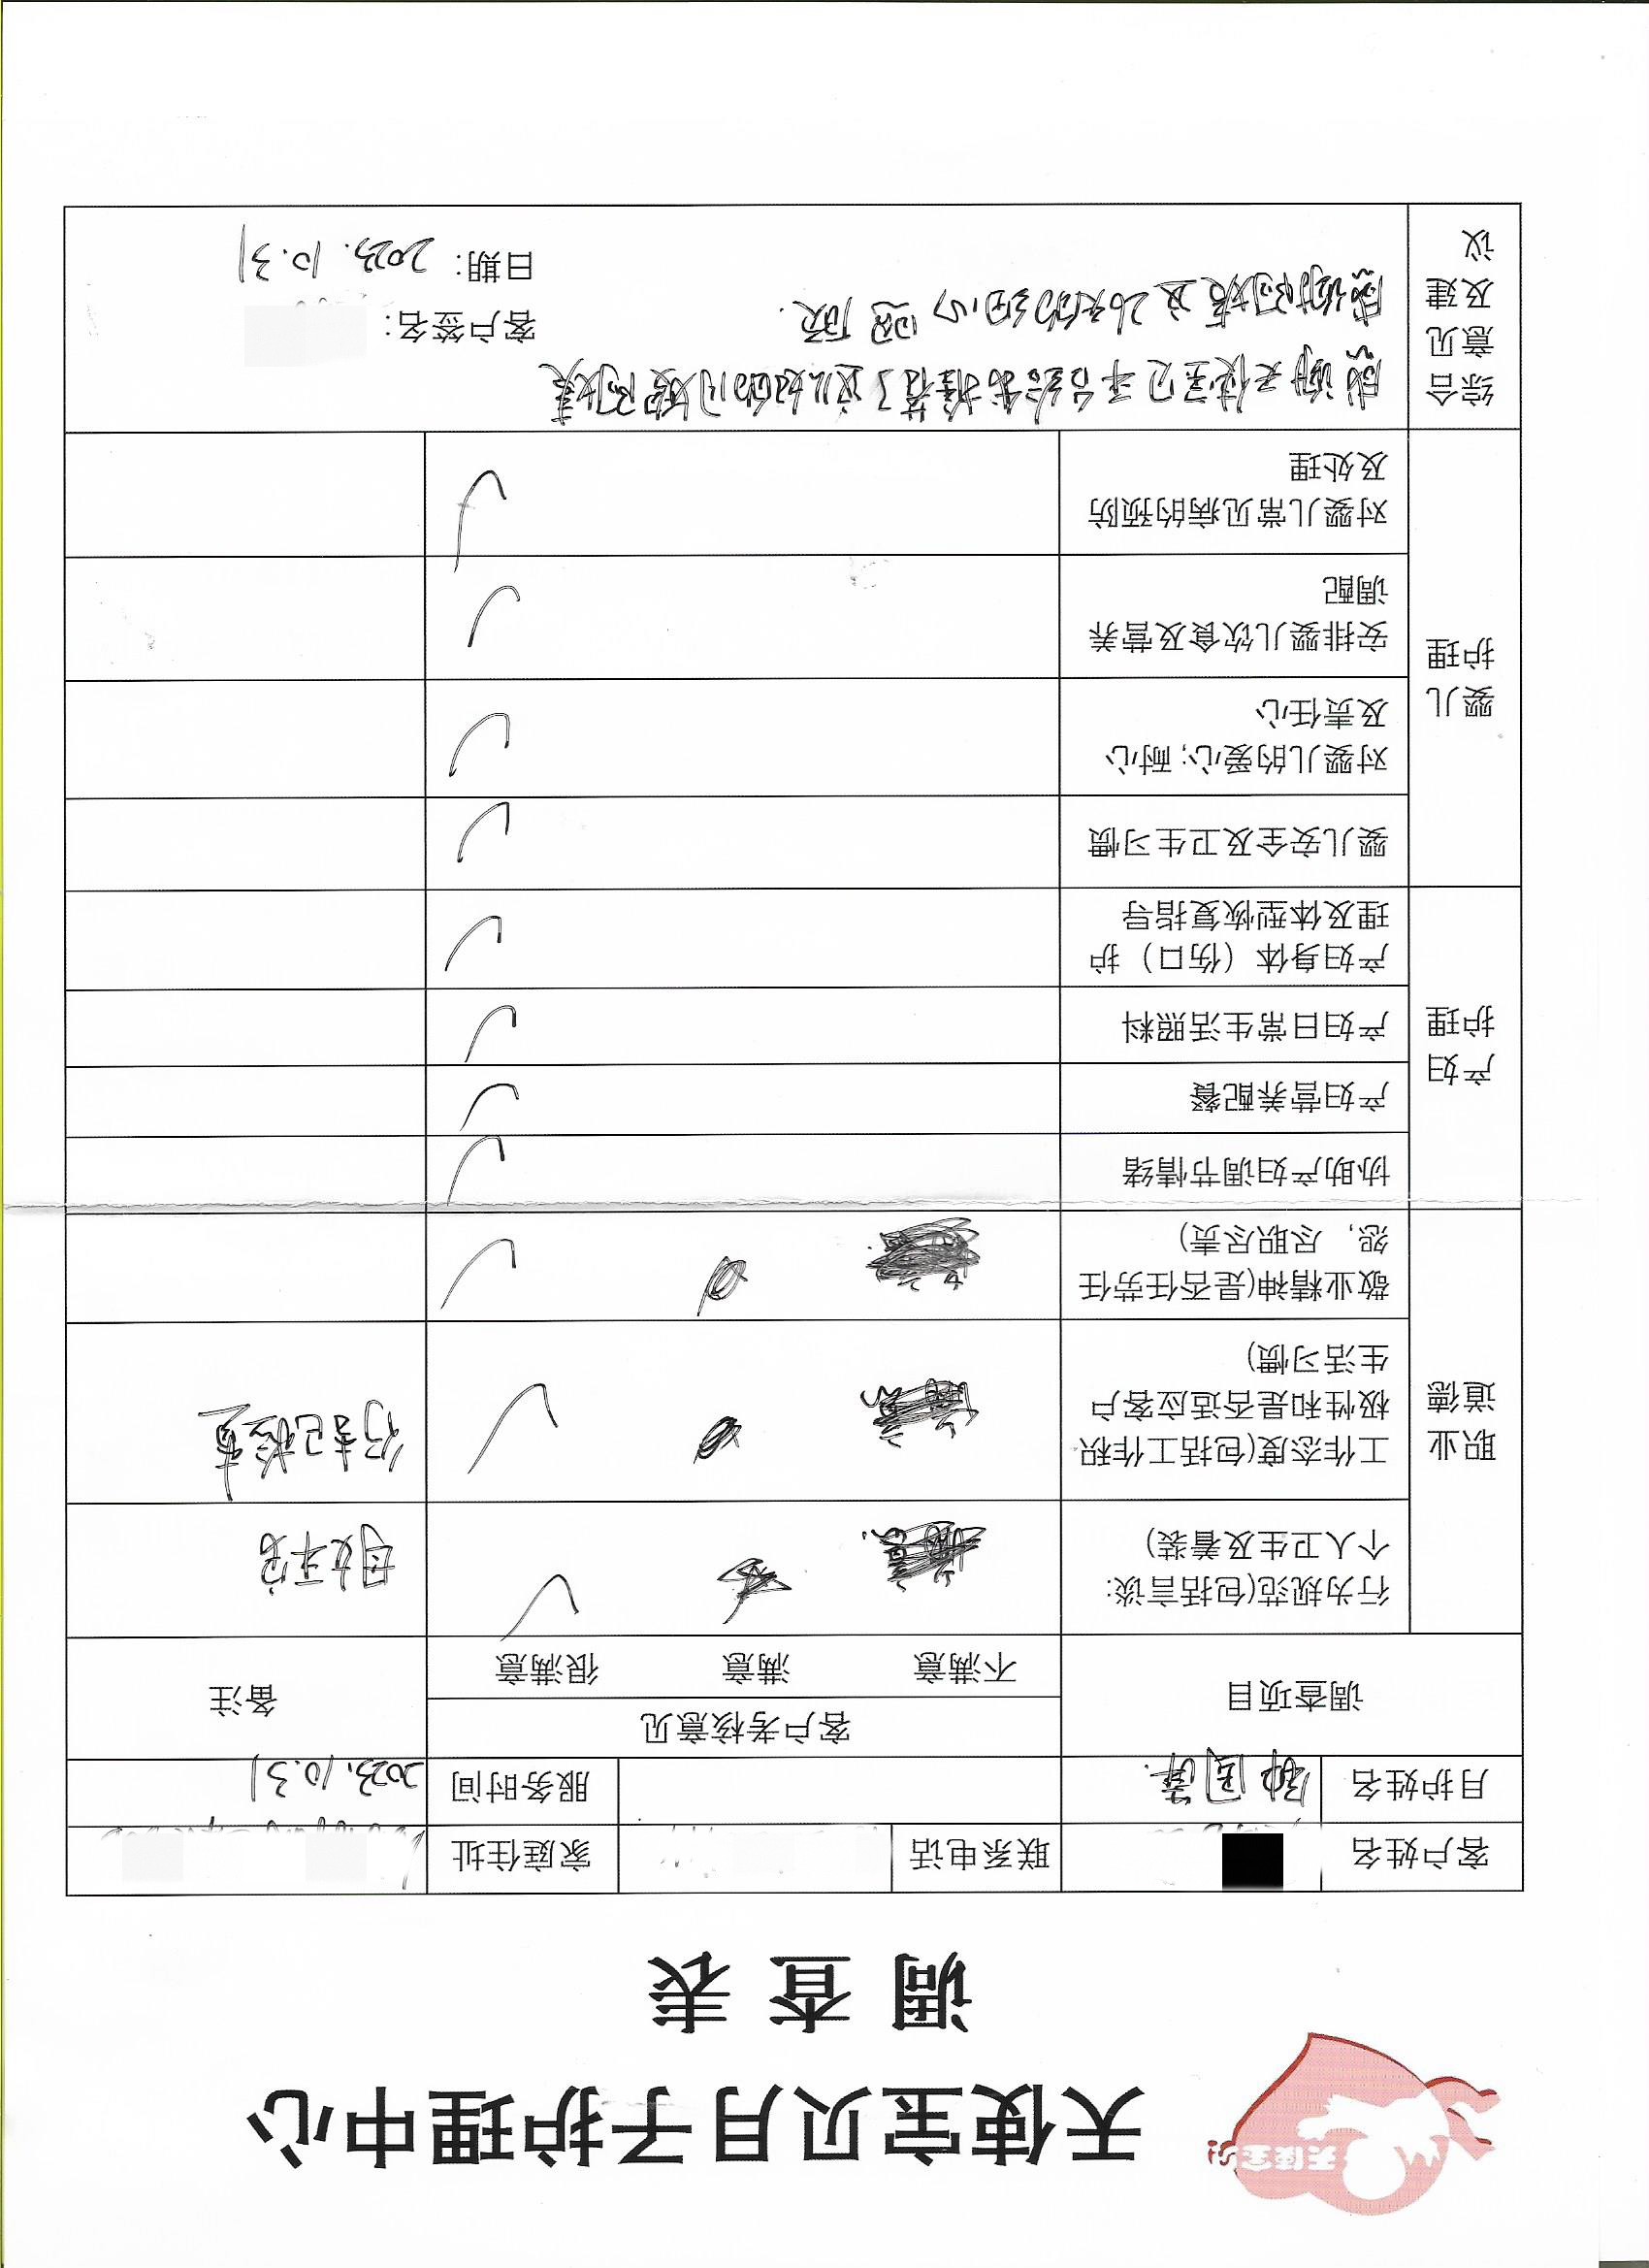 天使宝贝
天使宝贝月子护理中心
调查表
客户姓名
联系电话
家庭住址
月护姓名
国
服务时间
2023.10.31
调查项目
客户考核意见
备注
不满意
满意
很满意
职业
道德
行为规范(包括言谈:
个人卫生及着装)
✓
母女平安
工作态度(包括工作积
极性和是否适应客户
生活习惯)
✓
行李已检查
敬业精神(是否任劳任
怨，尽职尽责)
✓
产妇
护理
协助产妇调节情绪
✓
产妇营养配餐
✓
产妇日常生活照料
✓
产妇身体（伤口）护
理及体型恢复指导
✓
婴儿
护理
婴儿安全及卫生习惯
✓
对婴儿的爱心;耐心
及责任心
✓
安排婴儿饮食及营养
调配
✓
对婴儿常见病的预防
及处理
✓
综合
意见
及建
议
感谢天使宝贝平台给我推荐了这么好的月嫂阿姨
感谢阿姨这26天的细心照顾.
客户签名:
日期: 2023.10.31